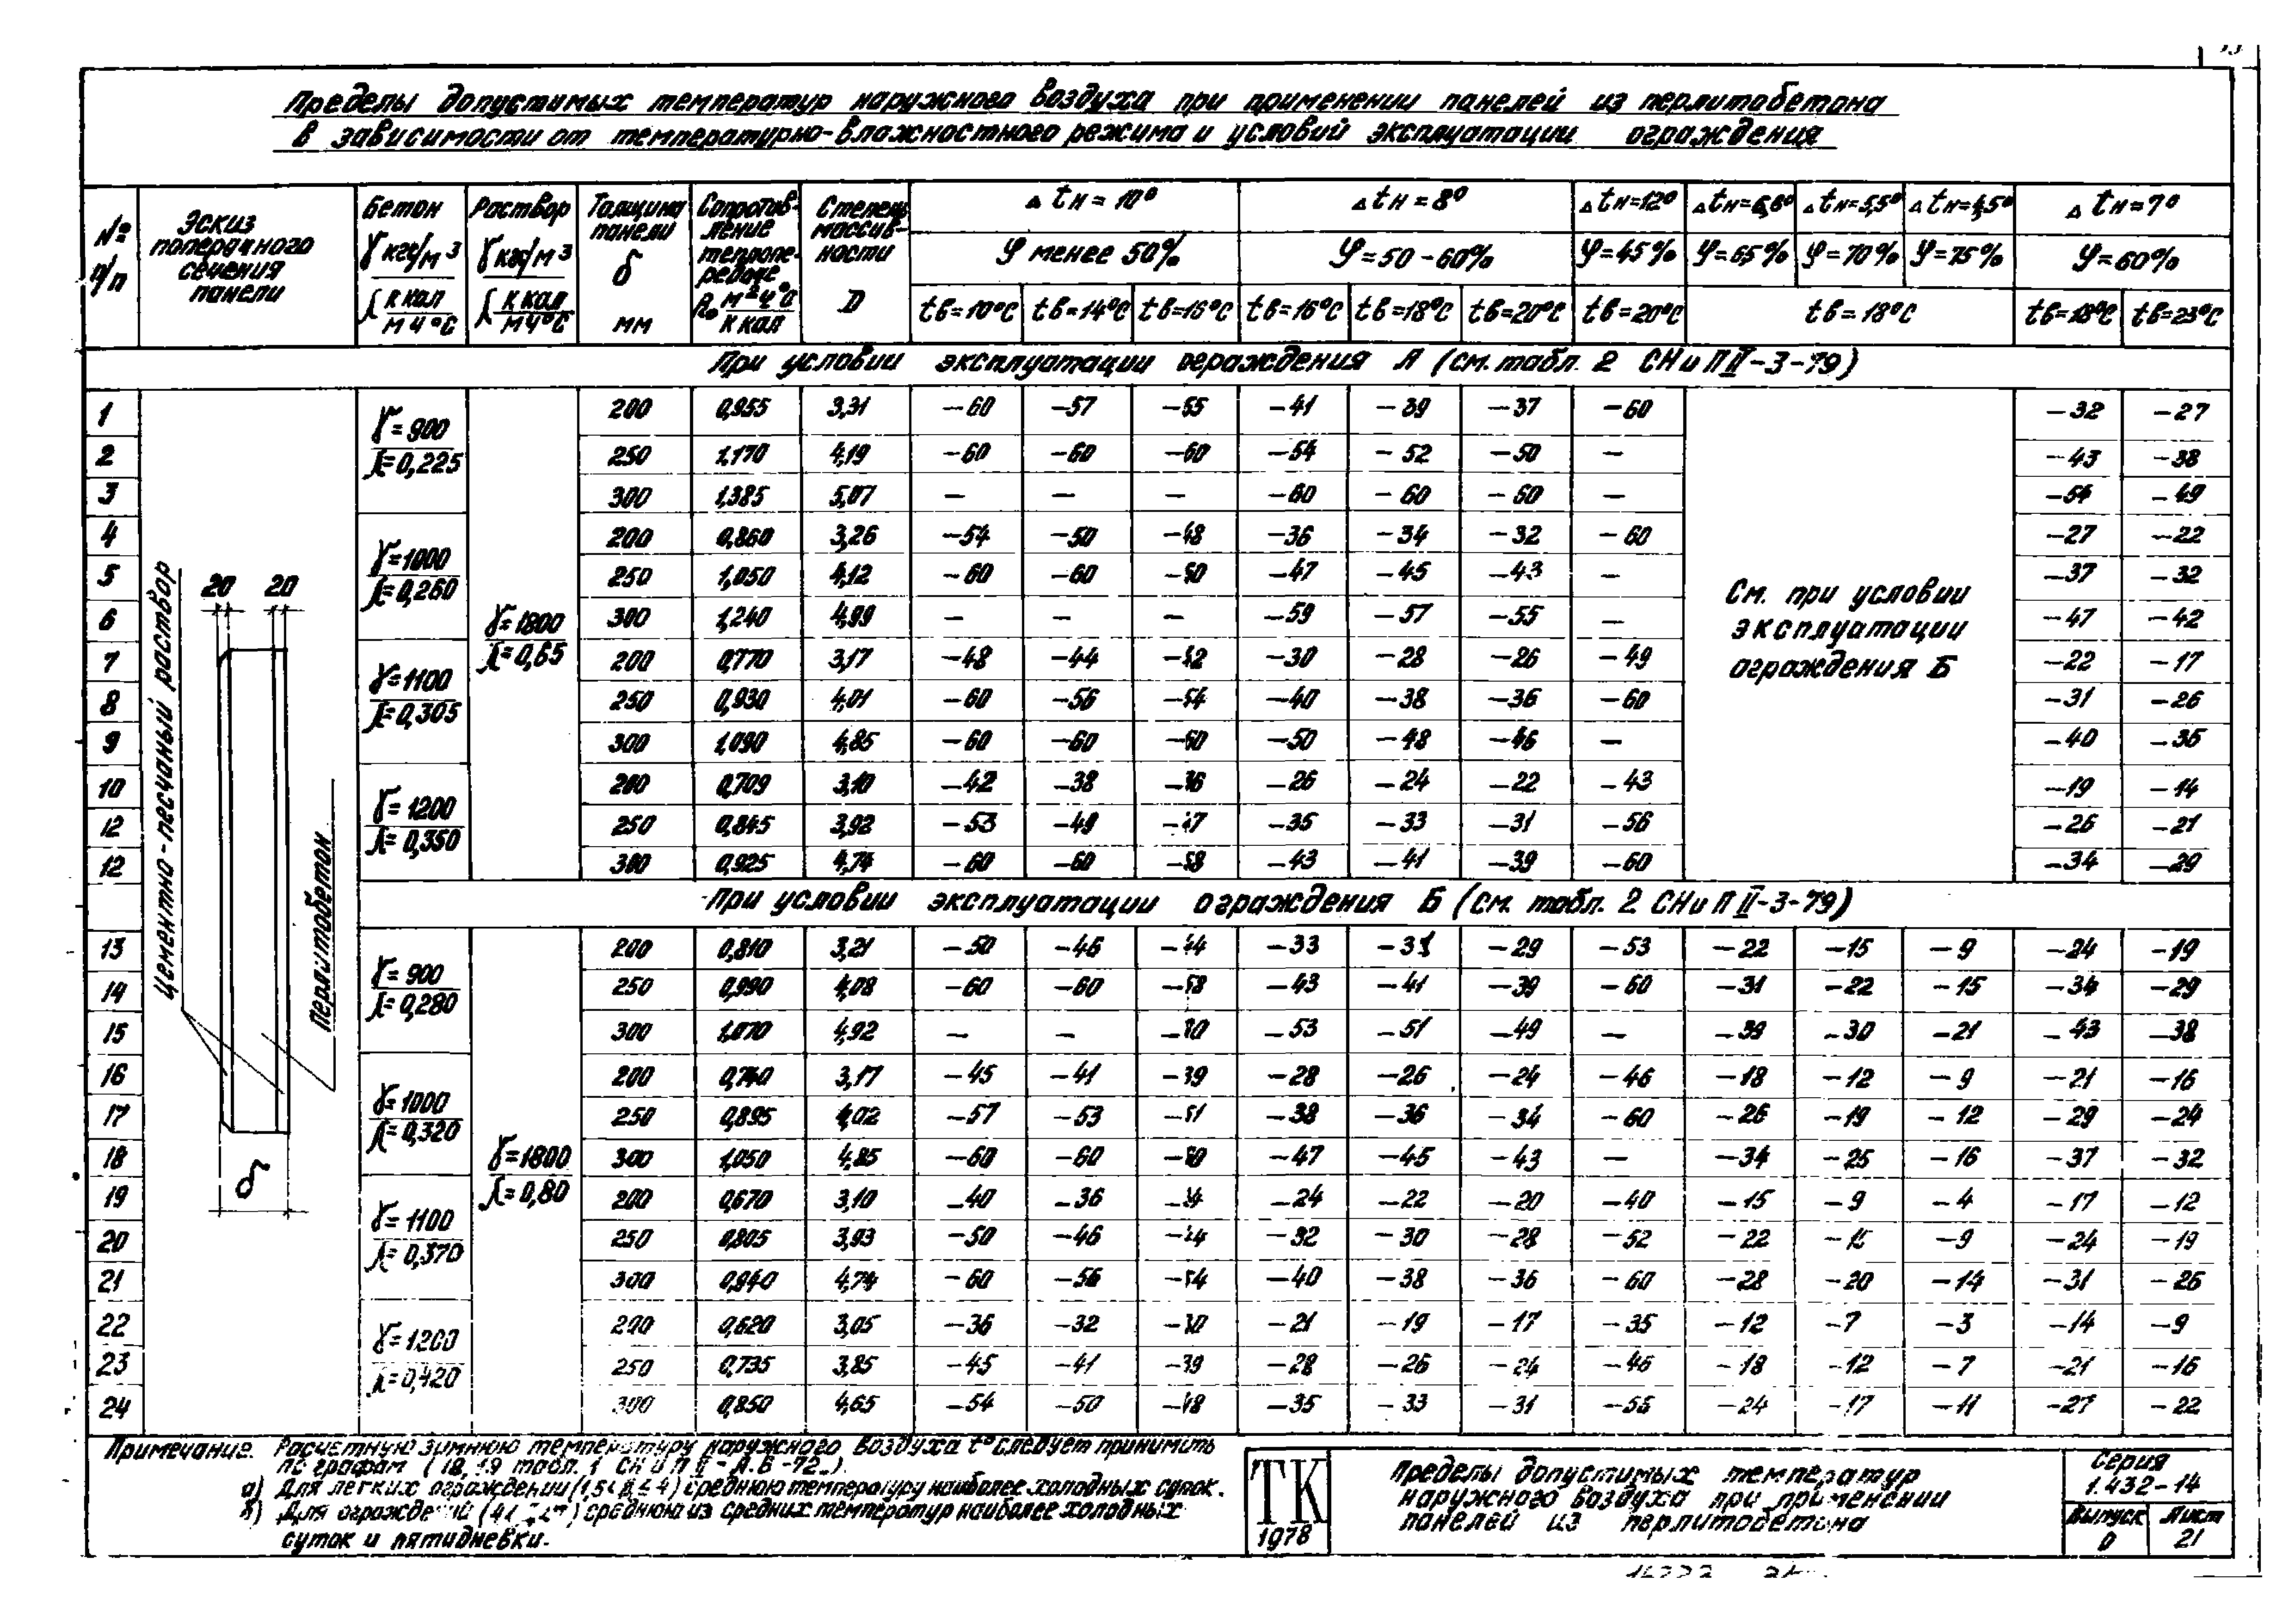 Пределы допустимых температур наружного воздуха при применении панелей из перлитобетона
в зависимости от температурно-влажностного режима и условий эксплуатации ограждения
№ п/п | Эскиз поперечного сечения панели | Бетон γ кгс/м³ λ ккал/м ч °С | Раствор γ кгс/м³ λ ккал/м ч °С | Толщина панели δ мм | Сопротивление теплопередаче R₀ м² ч °С/ккал | Степень массивности D | Δtн=10° | Δtн=8° | Δtн=12° | Δtн=6,6° | Δtн=5,5° | Δtн=4,5° | Δtн=7°
φ менее 50% | φ=50-60% | φ=45% | φ=65% | φ=70% | φ=75% | φ=60%
tв=10°С | tв=14°С | tв=16°С | tв=16°С | tв=18°С | tв=20°С | tв=20°С | tв=18°С | tв=18°С | tв=23°С
При условии эксплуатации ограждения А (см. табл. 2 СНиП II-3-79)
1 | γ=900 λ=0,225 | γ=1800 λ=0,65 | 200 | 0,955 | 3,31 | -60 | -57 | -55 | -41 | -39 | -37 | -60 | -32 | -27
2 | 250 | 1,170 | 4,19 | -60 | -60 | -60 | -54 | -52 | -50 | — | -43 | -38
3 | 300 | 1,385 | 5,07 | — | — | — | -60 | -60 | -60 | — | -54 | -49
4 | γ=1000 λ=0,260 | 200 | 0,860 | 3,26 | -54 | -50 | -48 | -36 | -34 | -32 | -60 | -27 | -22
5 | 250 | 1,050 | 4,12 | -60 | -60 | -60 | -47 | -45 | -43 | — | -37 | -32
6 | 300 | 1,240 | 4,99 | — | — | — | -59 | -57 | -55 | — | -47 | -42
7 | γ=1100 λ=0,305 | 200 | 0,770 | 3,17 | -48 | -44 | -42 | -30 | -28 | -26 | -49 | -22 | -17
8 | 250 | 0,930 | 4,01 | -60 | -56 | -54 | -40 | -38 | -36 | -60 | -31 | -26
9 | 300 | 1,090 | 4,85 | -60 | -60 | -60 | -50 | -48 | -46 | — | -40 | -35
10 | γ=1200 λ=0,350 | 200 | 0,709 | 3,10 | -42 | -38 | -36 | -26 | -24 | -22 | -43 | -19 | -14
12 | 250 | 0,845 | 3,92 | -53 | -49 | -47 | -35 | -33 | -31 | -56 | -26 | -21
12 | 300 | 0,925 | 4,74 | -60 | -60 | -58 | -43 | -41 | -39 | -60 | -34 | -29
См. при условии
эксплуатации
ограждения Б
20 20
Цементно-песчаный раствор
Перлитобетон
δ
При условии эксплуатации ограждения Б (см. табл. 2 СНиП II-3-79)
13 | γ=900 λ=0,280 | γ=1800 λ=0,80 | 200 | 0,810 | 3,21 | -50 | -46 | -44 | -33 | -31 | -29 | -53 | -22 | -15 | -9 | -24 | -19
14 | 250 | 0,990 | 4,08 | -60 | -60 | -58 | -43 | -41 | -39 | -60 | -31 | -22 | -15 | -34 | -29
15 | 300 | 1,070 | 4,92 | — | — | -60 | -53 | -51 | -49 | — | -39 | -30 | -21 | -43 | -38
16 | γ=1000 λ=0,320 | 200 | 0,740 | 3,17 | -45 | -41 | -39 | -28 | -26 | -24 | -46 | -18 | -12 | -9 | -21 | -16
17 | 250 | 0,895 | 4,02 | -57 | -53 | -51 | -38 | -36 | -34 | -60 | -26 | -19 | -12 | -29 | -24
18 | 300 | 1,050 | 4,85 | -60 | -60 | -60 | -47 | -45 | -43 | — | -34 | -25 | -16 | -37 | -32
19 | γ=1100 λ=0,370 | 200 | 0,670 | 3,10 | -40 | -36 | -34 | -24 | -22 | -20 | -40 | -15 | -9 | -4 | -17 | -12
20 | 250 | 0,805 | 3,93 | -50 | -46 | -44 | -32 | -30 | -28 | -52 | -22 | -15 | -9 | -24 | -19
21 | 300 | 0,940 | 4,74 | -60 | -56 | -54 | -40 | -38 | -36 | -60 | -28 | -20 | -14 | -31 | -26
22 | γ=1200 λ=0,420 | 200 | 0,620 | 3,05 | -36 | -32 | -30 | -21 | -19 | -17 | -35 | -12 | -7 | -3 | -14 | -9
23 | 250 | 0,735 | 3,85 | -45 | -41 | -39 | -28 | -26 | -24 | -46 | -18 | -12 | -7 | -21 | -16
24 | 300 | 0,850 | 4,65 | -54 | -50 | -48 | -35 | -33 | -31 | -56 | -24 | -17 | -11 | -27 | -22
Примечание. Расчетную зимнюю температуру наружного воздуха t° следует принимать
по графам (18, 19 табл. 1 СНиП II-А.6-72).
а) Для легких ограждений (1,5< D ≤ 4) среднюю температуру наиболее холодных суток.
б) Для ограждений среднюю из средних температур наиболее холодных
суток и пятидневки.
ТК
1978
Пределы допустимых температур
наружного воздуха при применении
панелей из перлитобетона
Серия
1.432-14
Выпуск Лист
0 21